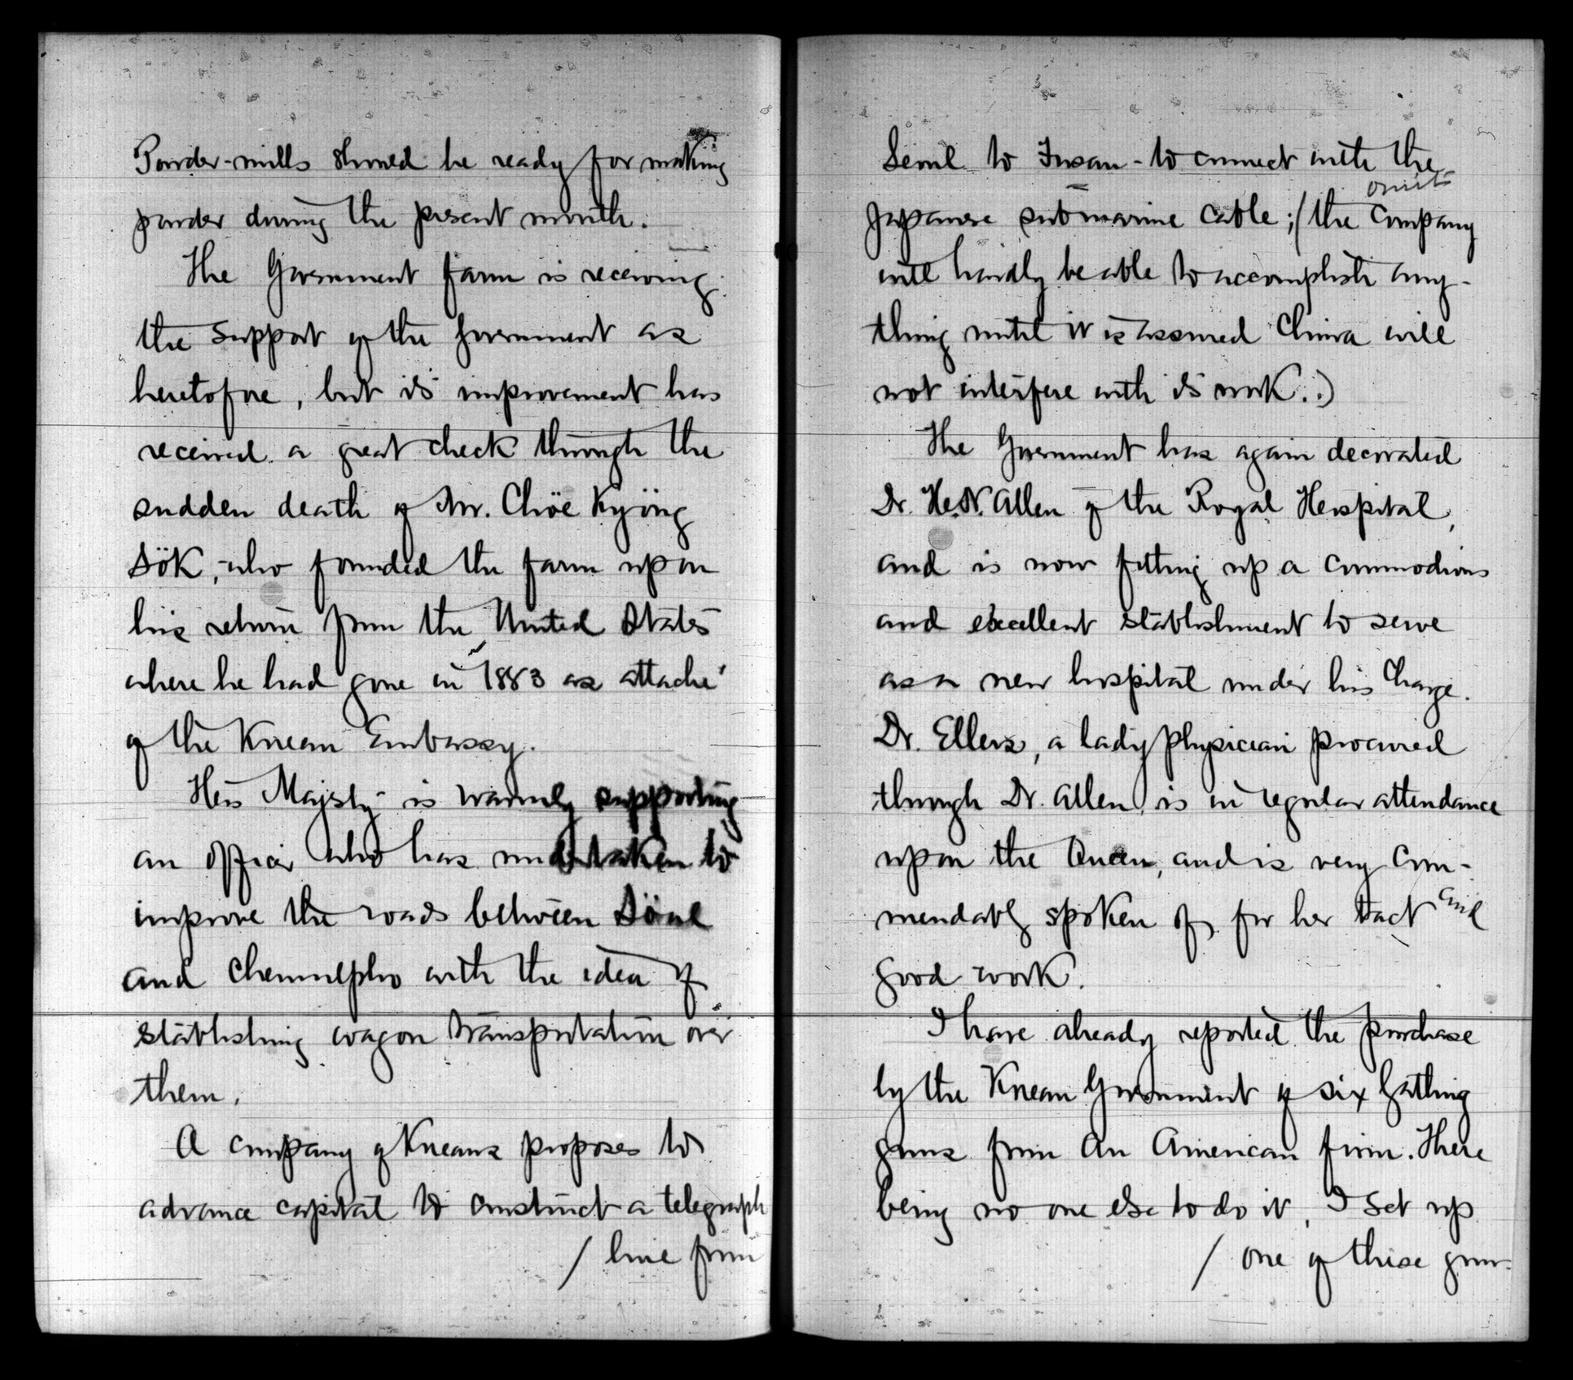 Powder-mills should be ready for making
powder during the present month.
The Government farm is receiving
the support of the Government as
heretofore, but its improvement has
received a great check through the
sudden death of Mr. Chöe Kyöng
Sök, who founded the farm upon
his return from the United States
where he had gone in 1883 as attaché
of the Korean Embassy.
His Majesty is warmly supporting
an officer who has undertaken to
improve the roads between Söul
and Chemulpho with the idea of
establishing wagon transportation over
them.
A company of Koreans proposes to
advance capital to construct a telegraph
/ line from
Seoul to Fusan - to connect with the
omit
Japanese submarine cable; (the company
will hardly be able to accomplish any-
thing until it is assured China will
not interfere with its work.)
The Government has again decorated
Dr. H.N. Allen of the Royal Hospital,
and is now fitting up a commodious
and excellent establishment to serve
as a new hospital under his charge.
Dr. Ellers, a lady physician procured
through Dr. Allen, is in regular attendance
upon the Queen, and is very com-
mendably spoken of for her tact and
good work.
I have already reported the purchase
by the Korean Government of six Gatling
guns from an American firm. There
being no one else to do it, I set up
/ one of these guns